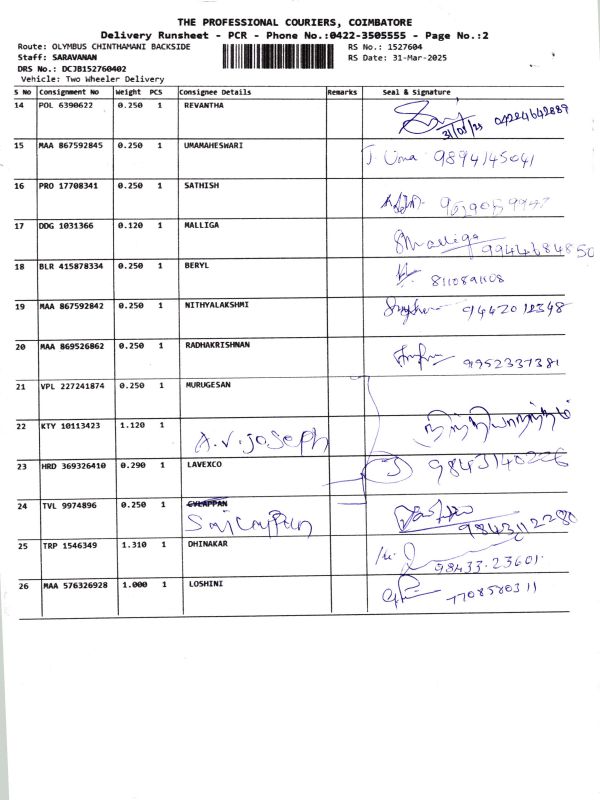 THE PROFESSIONAL COURIERS, COIMBATORE
Delivery Runsheet - PCR - Phone No.:0422-3505555 - Page No.:2
Route: OLYMBUS CHINTHAMANI BACKSIDE RS No.: 1527604
Staff: SARAVANAN RS Date: 31-Mar-2025
DRS No.: DCJB152760402
Vehicle: Two Wheeler Delivery
S No Consignment No Weight PCS Consignee Details Remarks Seal & Signature
14 POL 6390622 0.250 1 REVANTHA
15 MAA 867592845 0.250 1 UMAMAHESWARI J Uma 9894145041
16 PRO 17708341 0.250 1 SATHISH
17 DDG 1031366 0.120 1 MALLIGA SMalliga 9944684850
18 BLR 415878334 0.250 1 BERYL 8110891108
19 MAA 867592842 0.250 1 NITHYALAKSHMI 9442012348
20 MAA 869526862 0.250 1 RADHAKRISHNAN 9952337381
21 VPL 227241874 0.250 1 MURUGESAN
22 KTY 10113423 1.120 1 A.V.JOSEPH
23 HRD 369326410 0.290 1 LAVEXCO
24 TVL 9974896 0.250 1 9843112280
25 TRP 1546349 1.310 1 DHINAKAR 98433.23601.
26 MAA 576326928 1.000 1 LOSHINI 7708580311